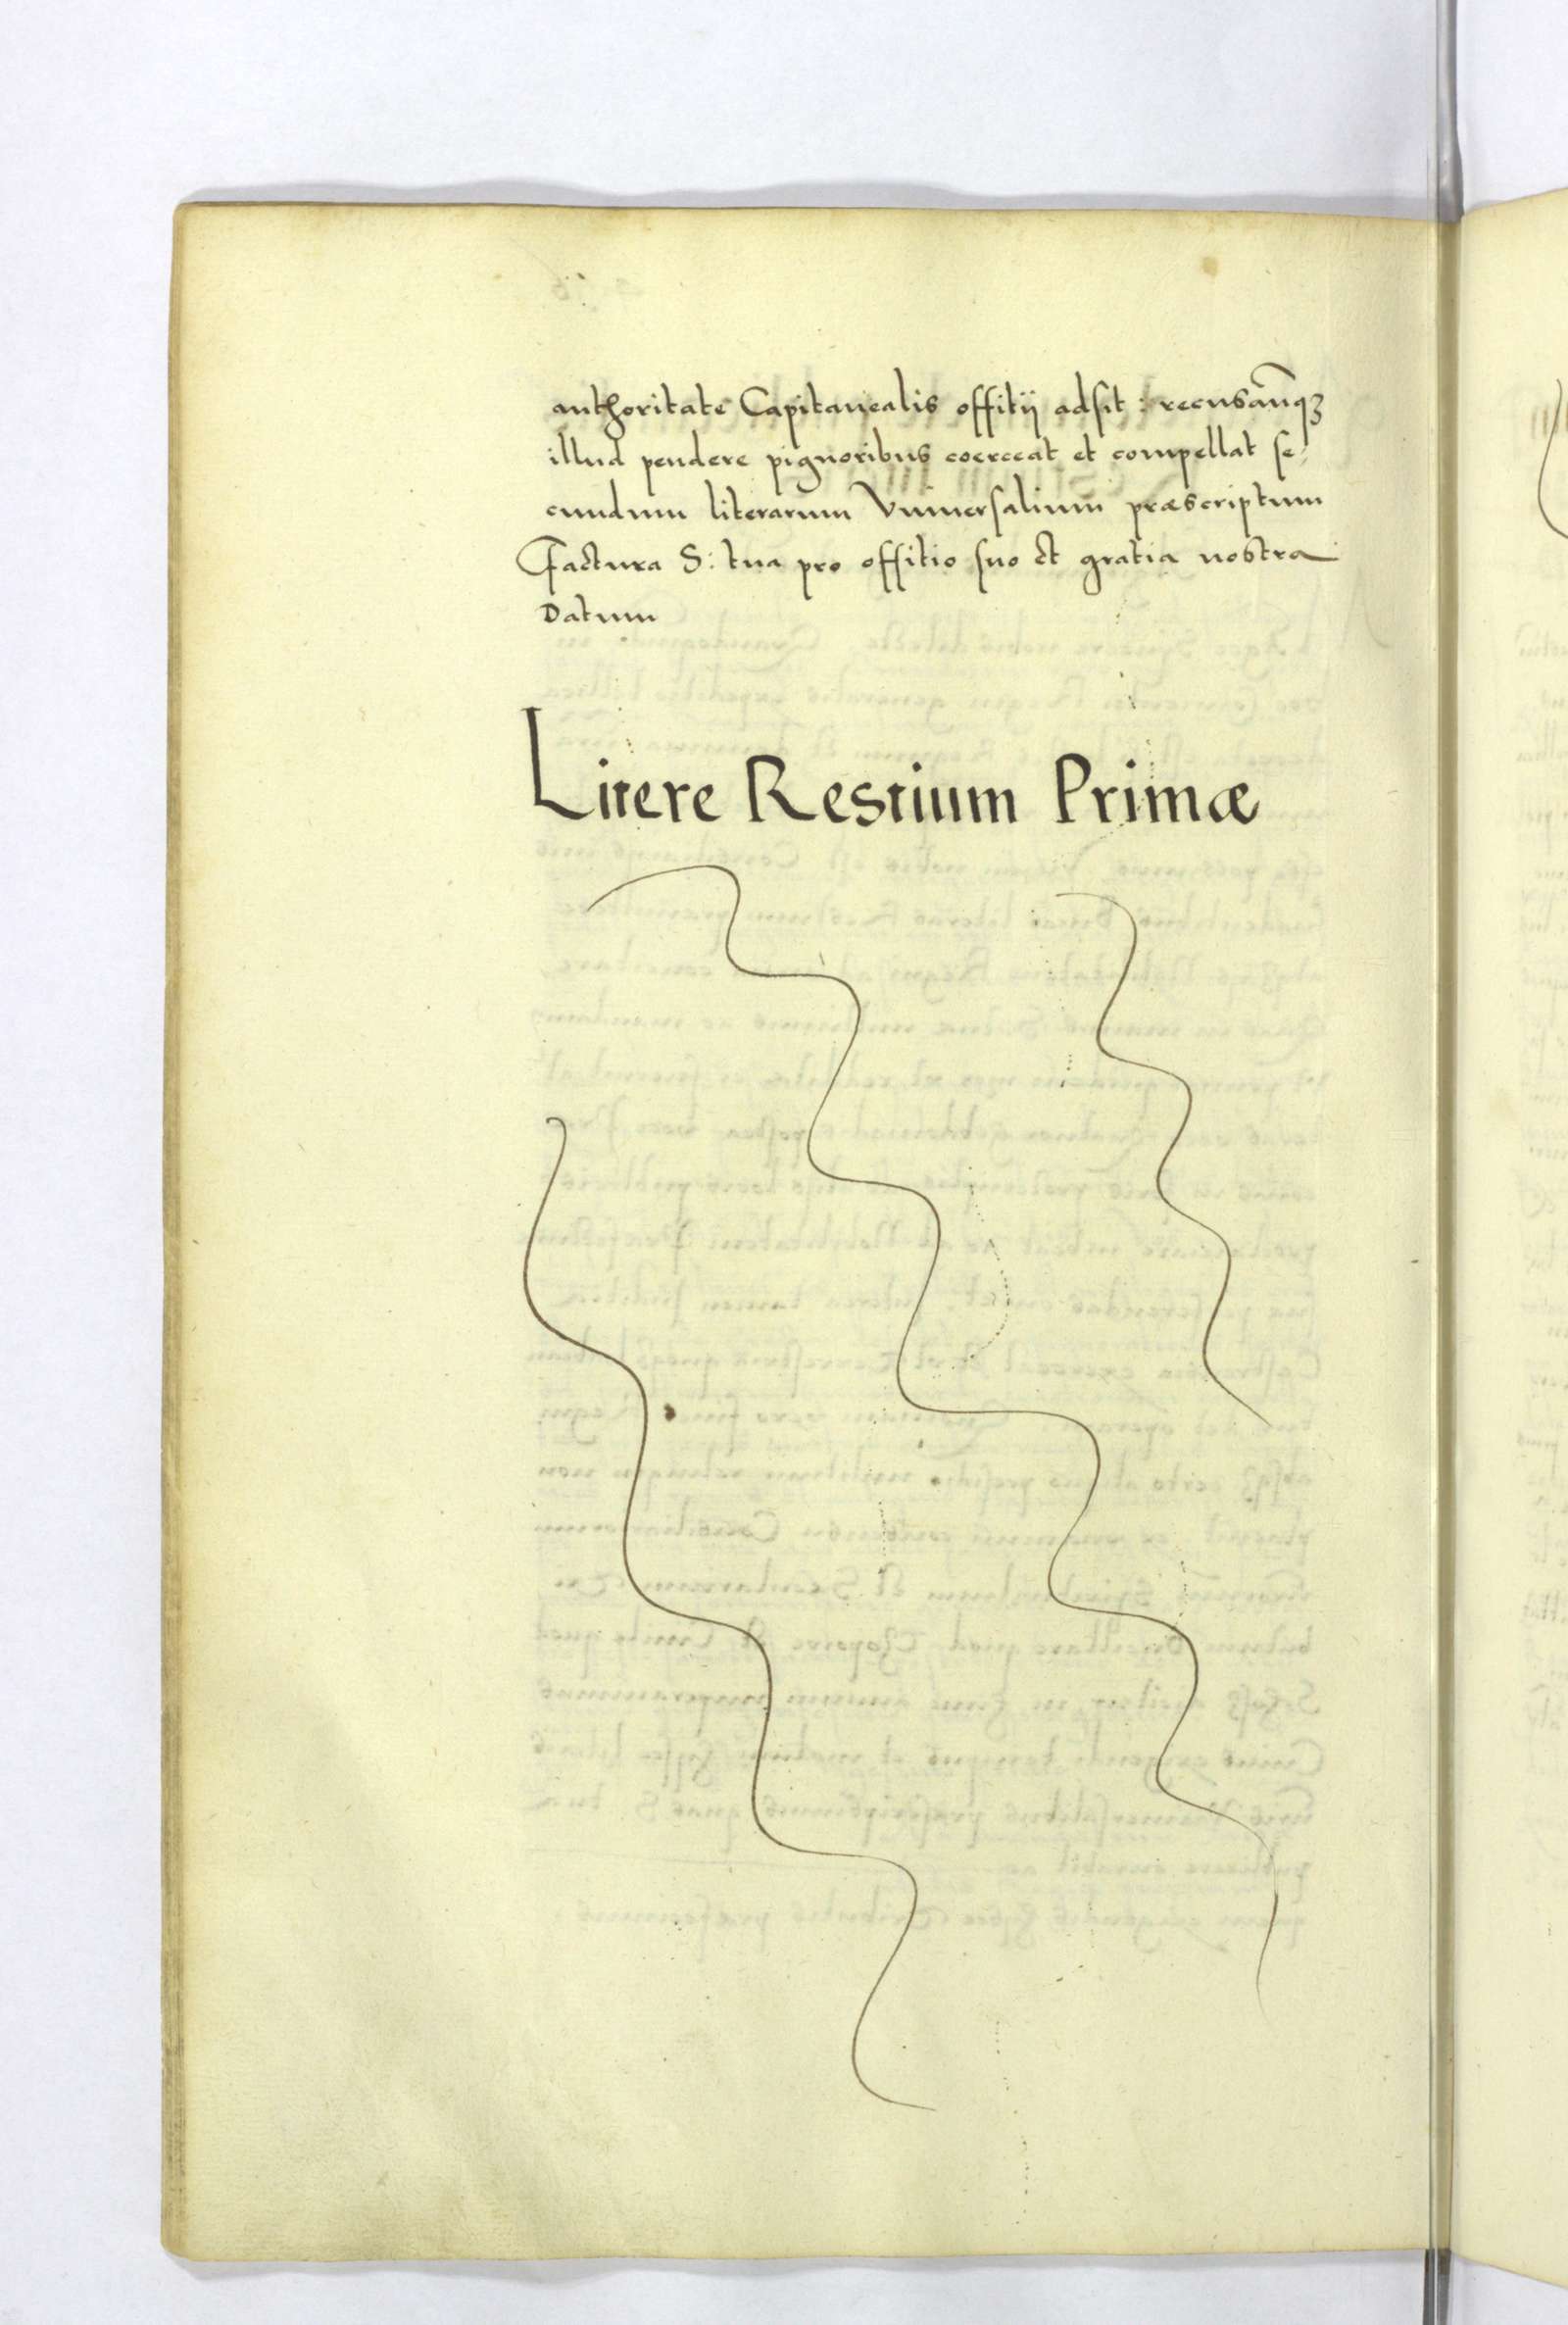 authoritate Capitanealis offitij adsit : recusan̄tq₃
illud pendere pignoribus coerceat et compellat se/
cundum literarum Vniuersalium præscriptum
Factura S: tua pro offitio suo et gratia nostra
Datum
Litere Restium Primæ